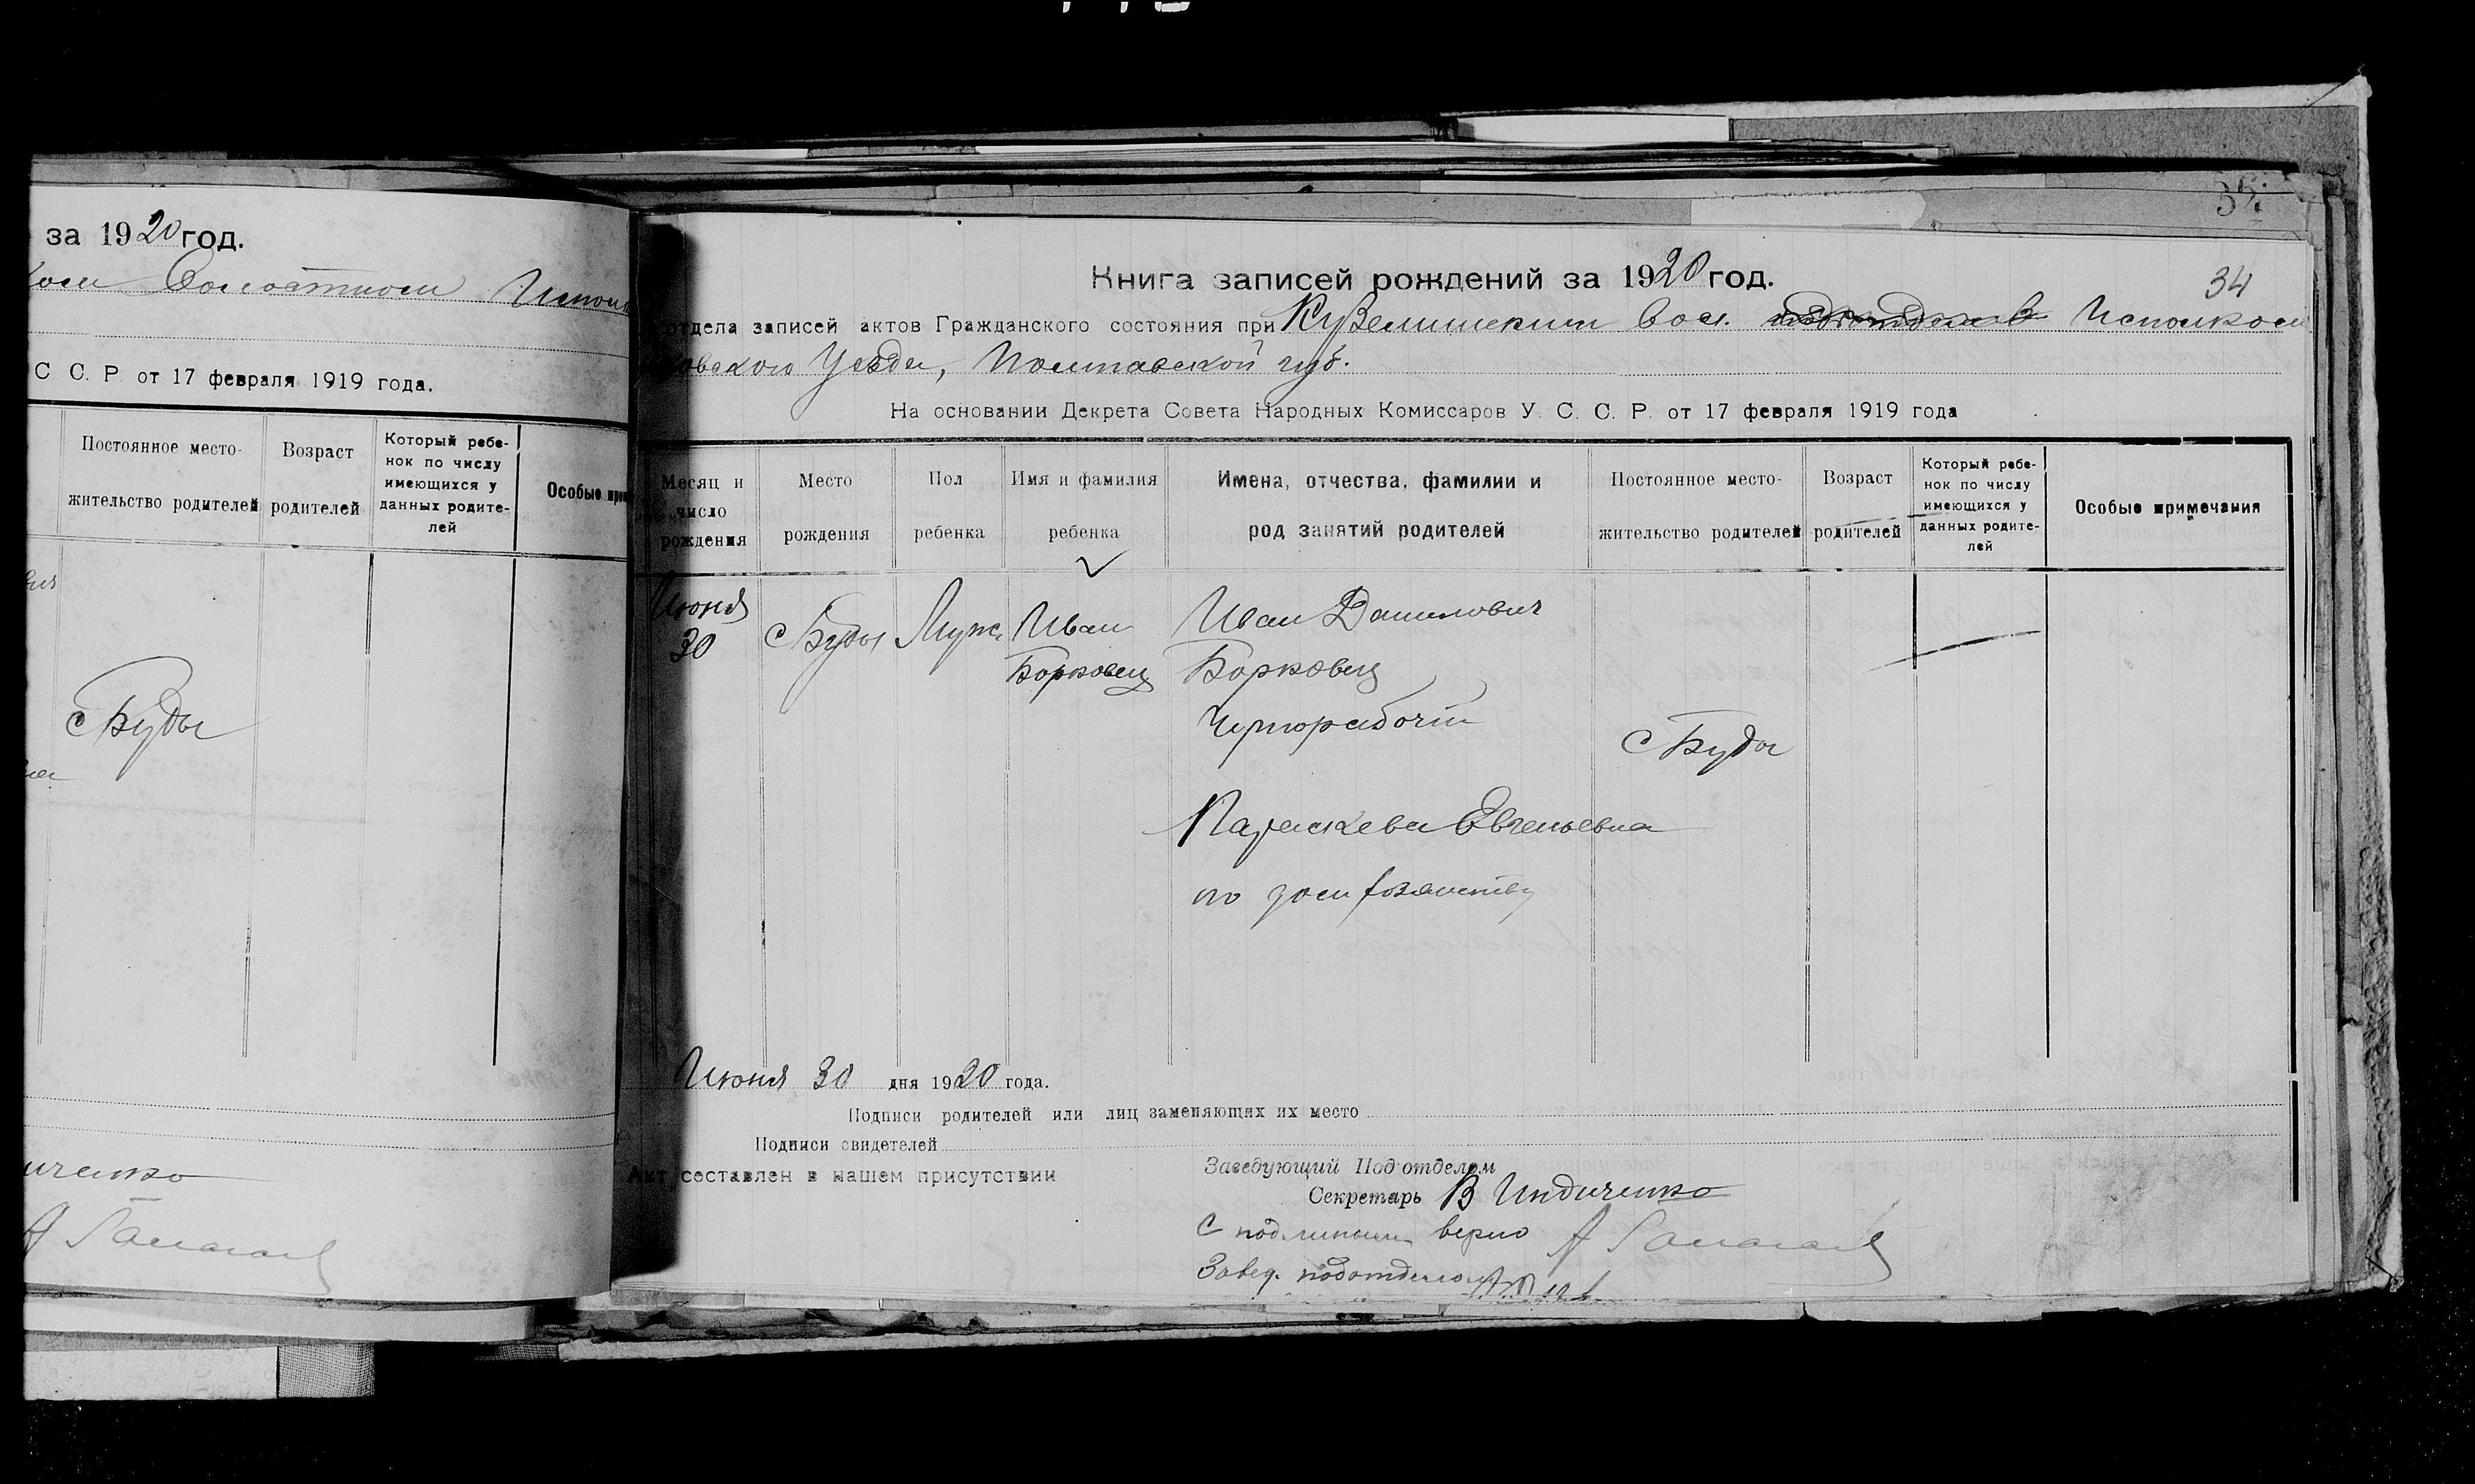 за 1920 год.
Волостном Исполк
С С. Р от 17 февраля 1919 года.
Постоянное место-
жительство родителей
Возраст
родителей
Который ребе-
нок по числу
имеющихся у
данных родите-
лей
Особые при
с Буды
иченко
34
Книга записей рождений за 1920 год.
отдела записей актов Гражданского состояния при вол. Исполком
овского Уезда, Полтавской губ.
На основании Декрета Совета Народных Комиссаров У. С. С. Р. от 17 февраля 1919 года
Месяц и
число
рождения
Место
рождения
Пол
ребенка
Имя и фамилия
ребенка
Имена, отчества, фамилии и
род занятий родителей
Постоянное место-
жительство родителей
Возраст
родителей
Который ребе-
нок по числу
имеющихся у
данных родите-
лей
Особые примечания
Июня
30
с Буды
Муж.
Иван
Борковец
Иван Данилович
Борковец
Чернорабочий
с Буды
Параскева Евгеньевна
по дом хозяйству
Июня 30 дня 1920 года.
Подписи родителей или лиц заменяющих их место
Подписи свидетелей
Акт составлен в нашем присутствии
Заведующий Подотделом
Секретарь В Индиченко
С подлинным верно
Завед. подотделом